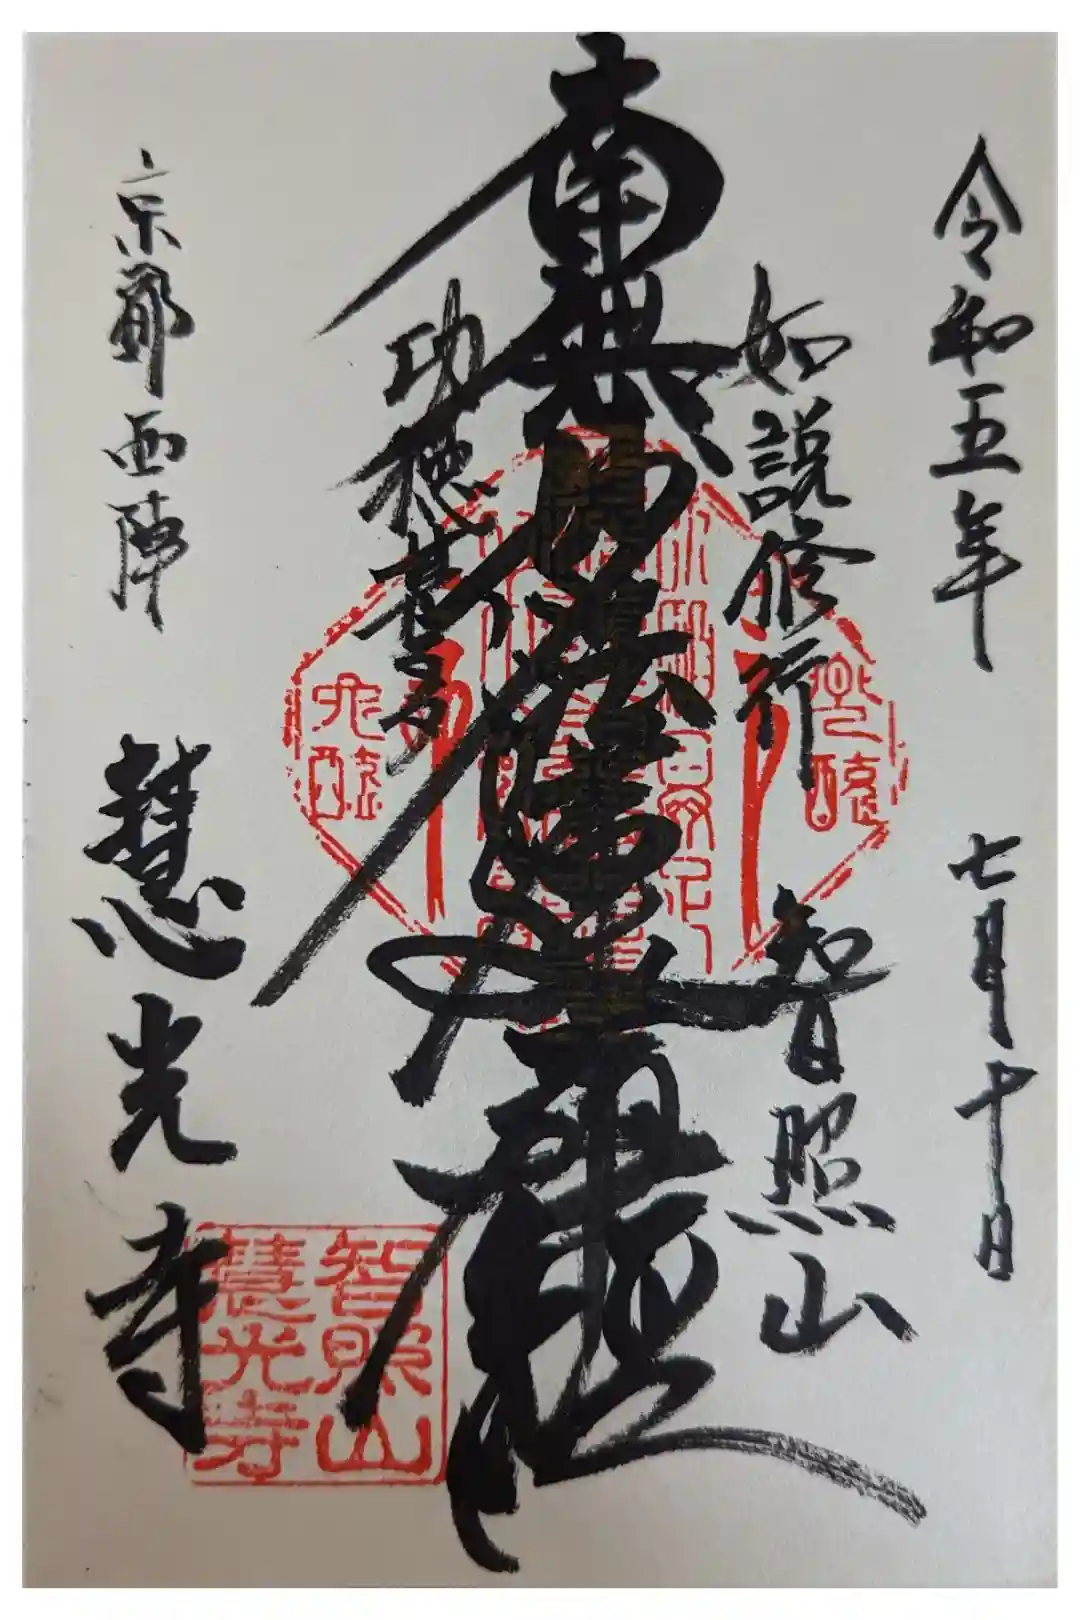 令和五年 七月十日
如説修行 智照山
南無妙法蓮華経
功徳甚多
京都西陣 慧光寺
智照山
慧光寺